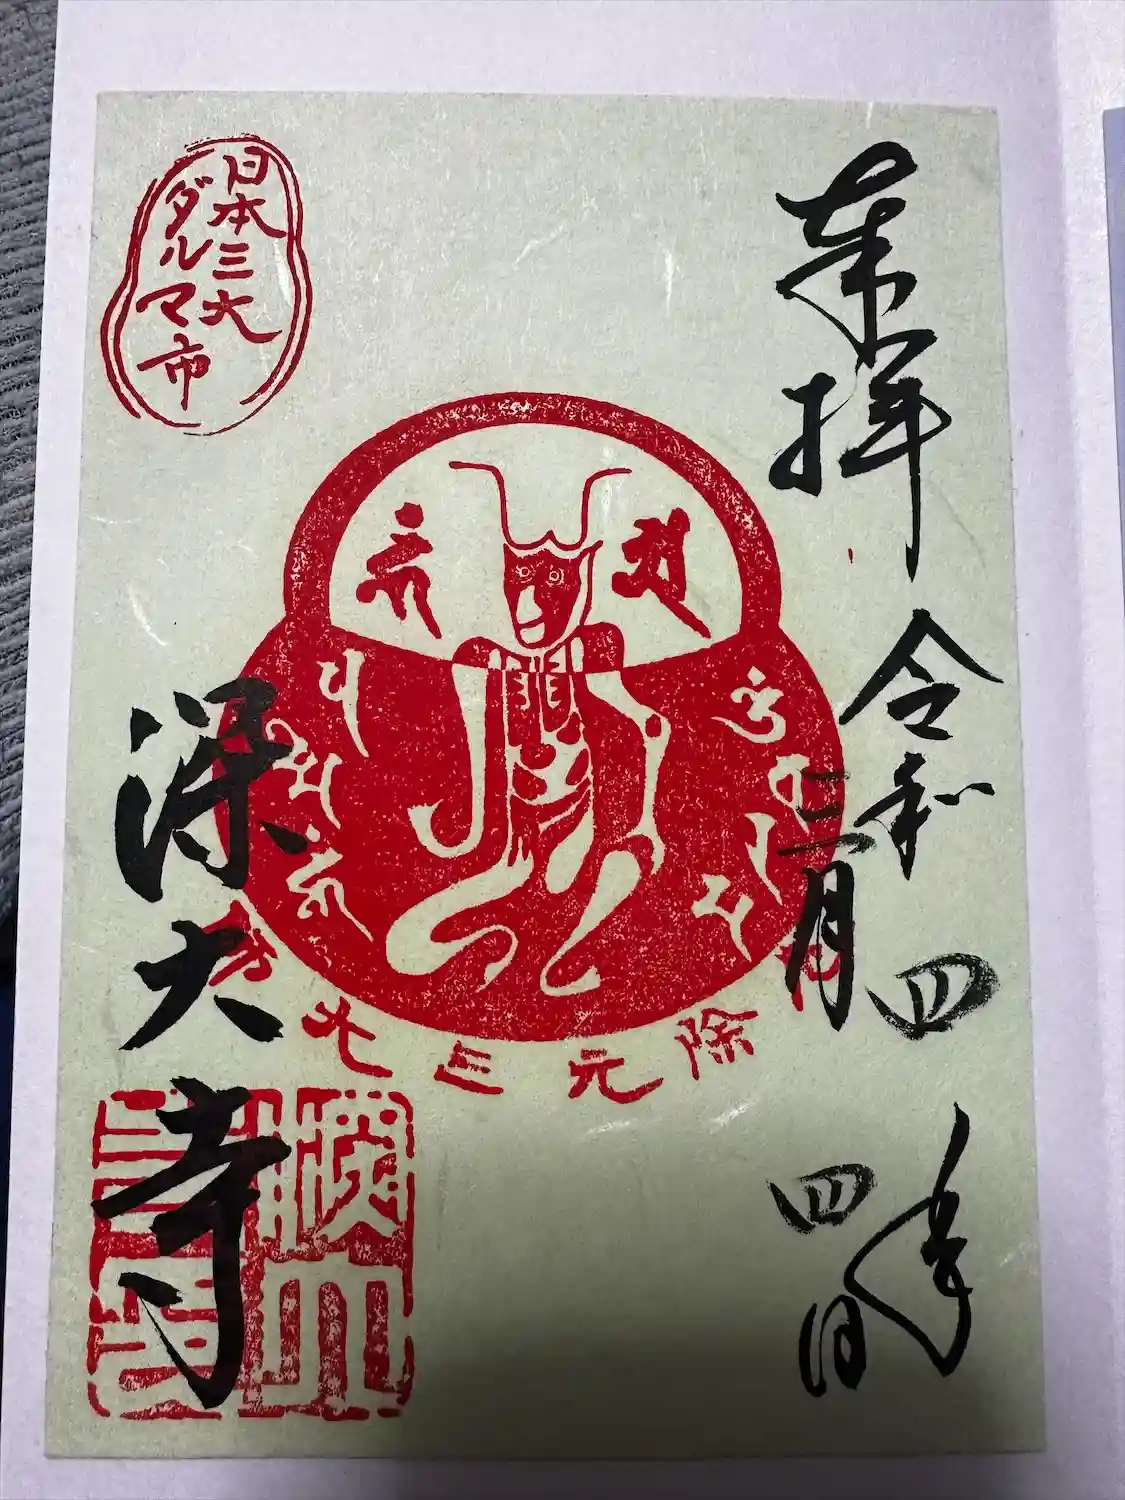 奉拝
令和四年
三月四日
日本三大
ダルマ市
除元三大
深大寺